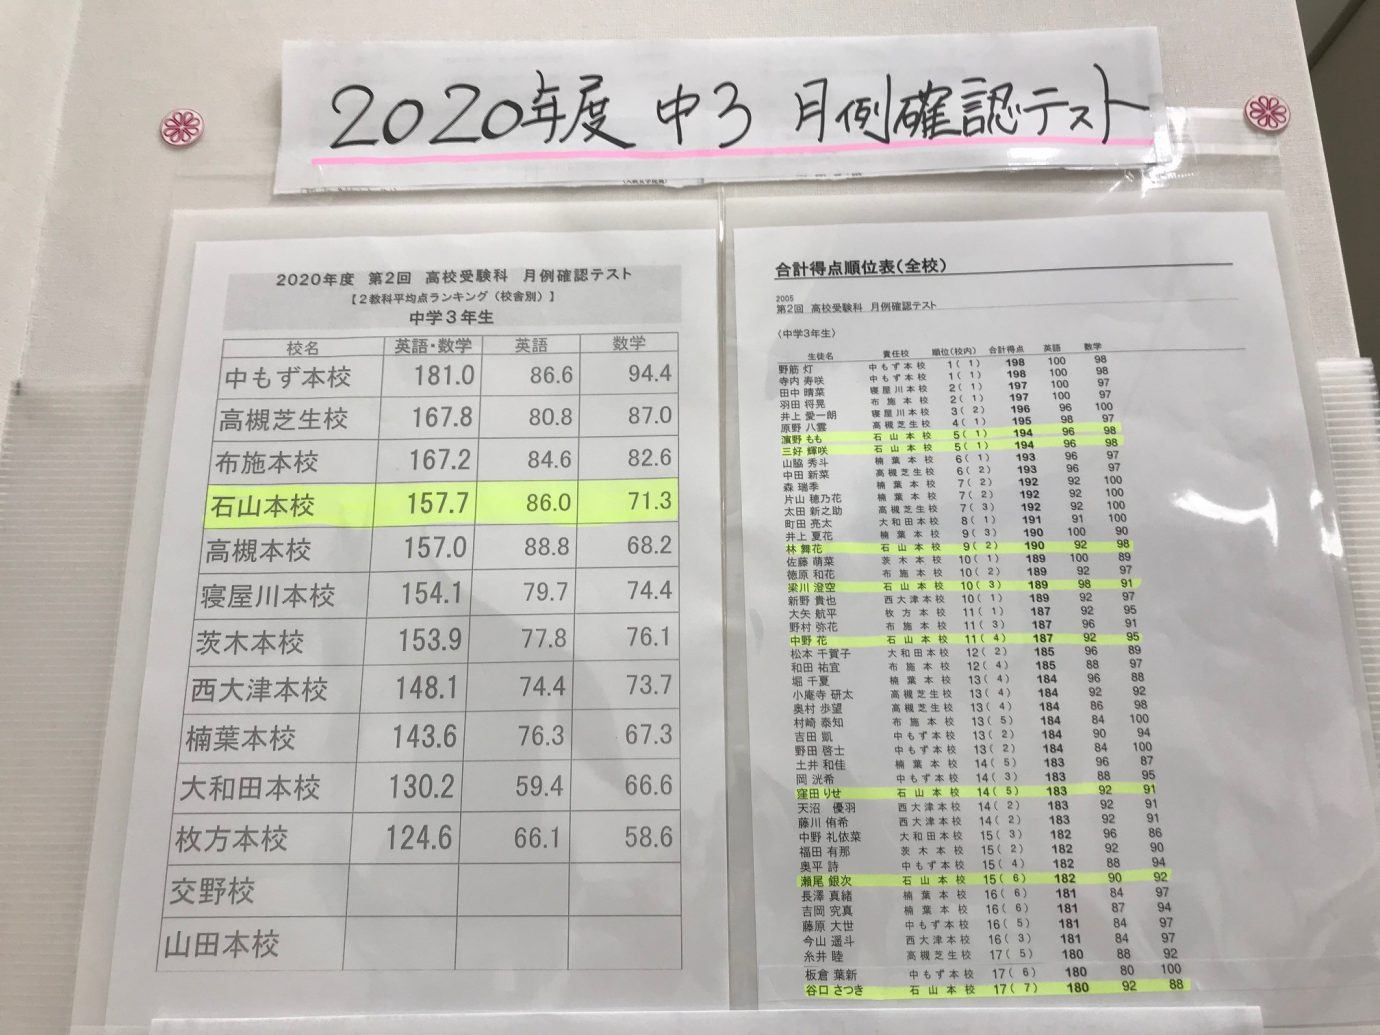 2020年度 中3 月例確認テスト
2020年度 第2回 高校受験科 月例確認テスト
【2教科平均点ランキング（校舎別）】
中学3年生
校名 英語・数学 英語 数学
中もず本校 181.0 86.6 94.4
高槻芝生校 167.8 80.8 87.0
布施本校 167.2 84.6 82.6
石山本校 157.7 86.0 71.3
高槻本校 157.0 88.8 68.2
寝屋川本校 154.1 79.7 74.4
茨木本校 153.9 77.8 76.1
西大津本校 148.1 74.4 73.7
楠葉本校 143.6 76.3 67.3
大和田本校 130.2 59.4 66.6
枚方本校 124.6 66.1 58.6
交野校
山田本校
合計得点順位表(全校)
2005
第2回 高校受験科 月例確認テスト
〈中学3年生〉
生徒名 責任校 順位(校内) 合計得点 英語 数学
野筋 灯 中もず本校 1( 1) 198 100 98
寺内 寿咲 中もず本校 1( 1) 198 100 98
田中 晴菜 寝屋川本校 2( 1) 197 100 97
羽田 将晃 布施本校 2( 1) 197 100 97
井上 愛一朗 寝屋川本校 3( 2) 196 96 100
原野 八雲 高槻芝生校 4( 1) 195 98 97
濵野 もも 石山本校 5( 1) 194 96 98
三好 輝咲 石山本校 5( 1) 194 96 98
山脇 秀斗 楠葉本校 6( 1) 193 96 97
中田 新菜 高槻芝生校 6( 2) 193 96 97
森 瑞季 楠葉本校 7( 2) 192 92 100
片山 穂乃花 楠葉本校 7( 2) 192 92 100
太田 新之助 高槻芝生校 7( 3) 192 92 100
町田 亮太 大和田本校 8( 1) 191 91 100
井上 夏花 楠葉本校 9( 3) 190 100 90
林 舞花 石山本校 9( 2) 190 92 98
佐藤 萌菜 茨木本校 10( 1) 189 100 89
徳原 和花 布施本校 10( 2) 189 92 97
梁川 澄空 石山本校 10( 3) 189 98 91
新野 貴也 西大津本校 10( 1) 189 92 97
大矢 航平 枚方本校 11( 1) 187 92 95
野村 弥花 布施本校 11( 3) 187 96 91
中野 花 石山本校 11( 4) 187 92 95
松本 千賀子 大和田本校 12( 2) 185 96 89
和田 祐宜 布施本校 12( 4) 185 88 97
堀 千夏 楠葉本校 13( 4) 184 96 88
小庵寺 研太 高槻芝生校 13( 4) 184 92 92
奥村 歩望 高槻芝生校 13( 4) 184 86 98
村崎 泰知 布施本校 13( 5) 184 84 100
吉田 凱 中もず本校 13( 2) 184 90 94
野田 啓士 中もず本校 13( 2) 184 84 100
土井 和佳 楠葉本校 14( 5) 183 96 87
岡 洸希 中もず本校 14( 3) 183 88 95
窪田 りせ 石山本校 14( 5) 183 92 91
天沼 優羽 西大津本校 14( 2) 183 92 91
藤川 侑希 西大津本校 14( 2) 183 92 91
中野 礼依菜 大和田本校 15( 3) 182 96 86
福田 有那 茨木本校 15( 2) 182 92 90
奥平 詩 中もず本校 15( 4) 182 88 94
瀬尾 銀次 石山本校 15( 6) 182 90 92
長澤 真緒 楠葉本校 16( 6) 181 84 97
吉岡 究真 楠葉本校 16( 6) 181 87 94
藤原 大世 中もず本校 16( 5) 181 84 97
今山 遥斗 西大津本校 16( 3) 181 84 97
糸井 睦 高槻芝生校 17( 5) 180 88 92
板倉 葉新 中もず本校 17( 6) 180 80 100
谷口 さつき 石山本校 17( 7) 180 92 88